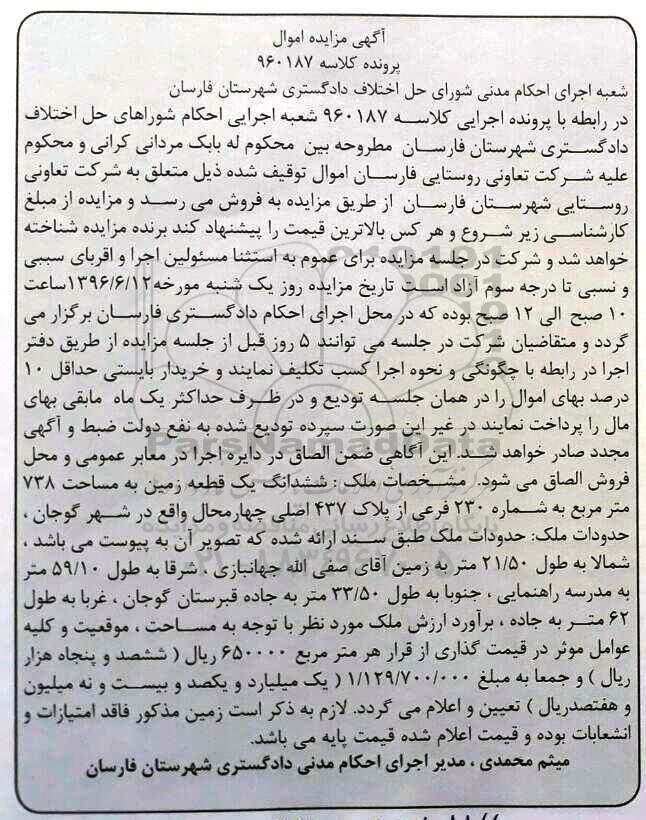 آگهی مزایده اموال
پرونده کلاسه ۹۶۰۱۸۷
شعبه اجرای احکام مدنی شورای حل اختلاف دادگستری شهرستان فارسان
در رابطه با پرونده اجرایی کلاسه ۹۶۰۱۸۷ شعبه اجرایی احکام شوراهای حل اختلاف
دادگستری شهرستان فارسان مطروحه بین محکوم له بابک مردانی کرانی و محکوم
علیه شرکت تعاونی روستایی فارسان اموال توقیف شده ذیل متعلق به شرکت تعاونی
روستایی شهرستان فارسان از طریق مزایده به فروش می رسد و مزایده از مبلغ
کارشناسی زیر شروع و هر کس بالاترین قیمت را پیشنهاد کند برنده مزایده شناخته
خواهد شد و شرکت در جلسه مزایده برای عموم به استثنا مسئولین اجرا و اقربای سببی
و نسبی تا درجه سوم آزاد است تاریخ مزایده روز یک شنبه مورخه۱۳۹۶/۶/۱۲ساعت
۱۰ صبح الی ۱۲ صبح بوده که در محل اجرای احکام دادگستری فارسان برگزار می
گردد و متقاضیان شرکت در جلسه می توانند ۵ روز قبل از جلسه مزایده از طریق دفتر
اجرا در رابطه با چگونگی و نحوه اجرا کسب تکلیف نمایند و خریدار بایستی حداقل ۱۰
درصد بهای اموال را در همان جلسه تودیع و در ظرف حداکثر یک ماه مابقی بهای
مال را پرداخت نمایند در غیر این صورت سپرده تودیع شده به نفع دولت ضبط و آگهی
مجدد صادر خواهد شد. این آگاهی ضمن الصاق در دایره اجرا در معابر عمومی و محل
فروش الصاق می شود. مشخصات ملک : ششدانگ یک قطعه زمین به مساحت ۷۳۸
متر مربع به شماره ۲۳۰ فرعی از پلاک ۴۳۷ اصلی چهارمحال واقع در شهر گوجان ،
حدودات ملک: حدودات ملک طبق سند ارائه شده که تصویر آن به پیوست می باشد ،
شمالا به طول ۲۱/۵۰ متر به زمین آقای صفی الله جهانبازی ، شرقا به طول ۵۹/۱۰ متر
به مدرسه راهنمایی ، جنوبا به طول ۳۳/۵۰ متر به جاده قبرستان گوجان ، غربا به طول
۶۲ متر به جاده ، برآورد ارزش ملک مورد نظر با توجه به مساحت ، موقعیت و کلیه
عوامل موثر در قیمت گذاری از قرار هر متر مربع ۶۵۰۰۰۰ ریال ( ششصد و پنجاه هزار
ریال ) و جمعا به مبلغ ۱/۱۲۹/۷۰۰/۰۰۰ ( یک میلیارد و یکصد و بیست و نه میلیون
و هفتصدریال ) تعیین و اعلام می گردد. لازم به ذکر است زمین مذکور فاقد امتیازات و
انشعابات بوده و قیمت اعلام شده قیمت پایه می باشد.
میثم محمدی ، مدیر اجرای احکام مدنی دادگستری شهرستان فارسان
ParsNamadData